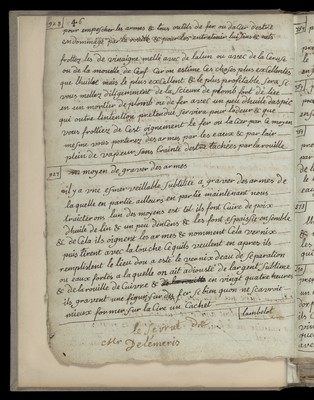 46
pour empescher les armes & tous outils de fer ou dacier destre
endommagé par la rouille & pour les entretenir luisans & nets
frottez les de vinaigre mellé avec de lalun ou avec de la Ceruse
ou de la mouelle de Cerf Car on estime Ces choses plus excellentes
que lhuile mais le plus excellent & le plus proffitable sera si
vous meslez diligemment de la scieure de plomb fort deliée
en un mortier de plomb ou de fer avec un peu dhuile daspic
qui outre lintention pretendue servira pour lodeur & que
vous frottiez de Cest oignement le fer ou lacier par ce moyen
mesme vous porterez des armes par les eaux & par lair
plein de vapeurs sans Crainte destre tachées par la rouille
moyen de graver des armes
il y a une esmerveillable subtilité a graver des armes de
laquelle en partie ailleurs en partie maintenant nous
traicterons lun des moyens est tel ils font Cuire de poix
dhuile de lin & un peu dencens & les font espoissir ensemble
& de Cela ils oignent les armes & nomment Cela vernix
puis tirent avec la touche Ce quils veulent en apres ils
remplissent le lieu dou a esté le vernix deau de separation
ou eaux fortes a laquelle on ait adiousté de largent sublimé
& de la rouille de Cuivre & en vingt quatre heures
ils gravent une figure sur du fer si bien quon ne scauroit
mieux former sur la Cire au Cachet